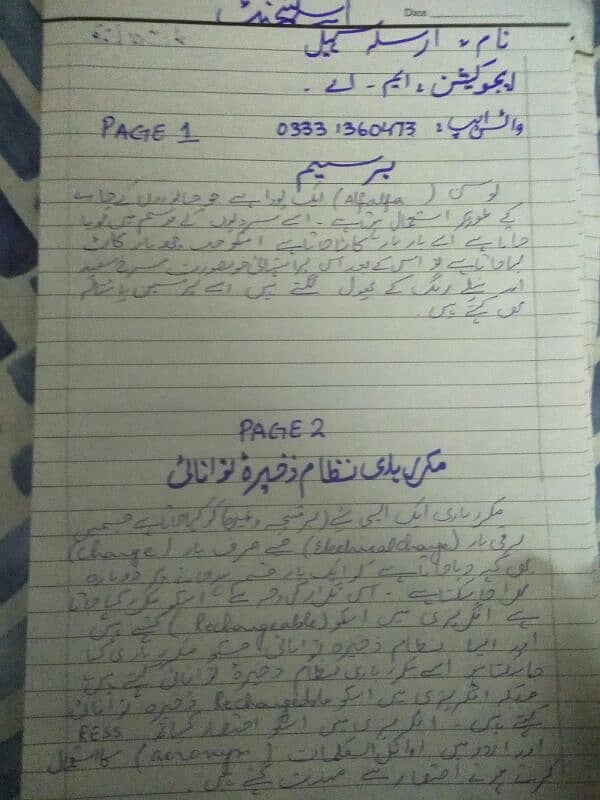 اسائنمنٹ
Date
نام: ارسلہ سہیل
ایجوکیشن: ایم - اے .
واٹس ایپ: 03331360473
PAGE 1
برسیم
لوسن (Alfalfa) ایک پودا ہے جو جانوروں کے چارے
کے طور پر استعمال ہوتا ہے - اسے سردیوں کے موسم میں بویا
جاتا ہے اسے بار بار کاٹا جاتا ہے
لیا جاتا ہے تو اس کے بعد اس پر خوبصورت سفید
اور نیلے رنگ کے پھول لگتے ہیں اسے برسیم یا
بھی کہتے ہیں.
PAGE 2
مکرر باری نظام ذخیرۂ توانائی
مکرر باری ایک ایسی شے کو کہا جاتا ہے جسمیں
برقی بار (Electrical charge) جسے صرف بار (Charge)
بھی کہہ دیا جاتا ہے کو ایک بار ختم ہو جانے پر دوبارہ
بھرا جا سکتا ہے - اس تکرار کی وجہ سے اسکو مکرر کہا جاتا
ہے انگریزی میں اسکو (Rechargeable) کہتے ہیں
اور ایسا نظام ذخیرہ توانائی جسکو مکرر باری کیا
جا سکتا ہو اسے مکرر باری نظام ذخیرۂ توانائی کہتے ہیں
جبکہ انگریزی میں اسکو Rechargeable ذخیرہ توانائی
کہتے ہیں - انگریزی میں اسکو اختصار کیساتھ RESS
اور اردو میں اوائل الکلمات (acronym) کا استعمال
کرتے ہوئے اختصار سے کہتے ہیں .